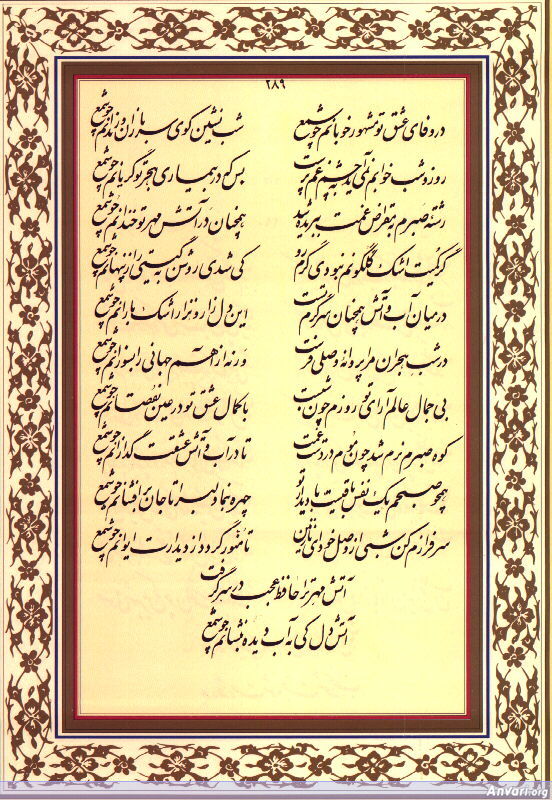 ۲۸۹
در وفای عشق تو مشهور خوبانم چو شمع شب نشین کوی سربازان و رندانم چو شمع
روز و شب خوابم نمی آید به چشم غم پرست بس که در بیماری هجر تو گریانم چو شمع
رشته صبرم به مقراض غمت ببریده شد همچنان در آتش مهر تو خندانم چو شمع
گر کمیت اشک گلگونم نبودی گرم رو کی شدی روشن به گیتی راز پنهانم چو شمع
در میان آب و آتش همچنان سرگرم تست این دل زار نزار اشک بارانم چو شمع
در شب هجران مرا پروانه وصلی فرست ورنه از آهم جهانی را بسوزانم چو شمع
بی جمال عالم آرای تو روزم چون شبست با کمال عشق تو در عین نقصانم چو شمع
کوه صبرم نرم شد چون موم در دست غمت تا در آب و آتش عشقت گدازانم چو شمع
همچو صبحم یک نفس باقیست با دیدار تو چهره بنما دلبرا تا جان برافشانم چو شمع
سرفرازم کن شبی از وصل خود ای نازنین تا منور گردد از دیدارت ایوانم چو شمع
آتش مهر ترا حافظ عجب در سر گرفت
آتش دل کی به آب دیده بنشانم چو شمع
Anvari.org